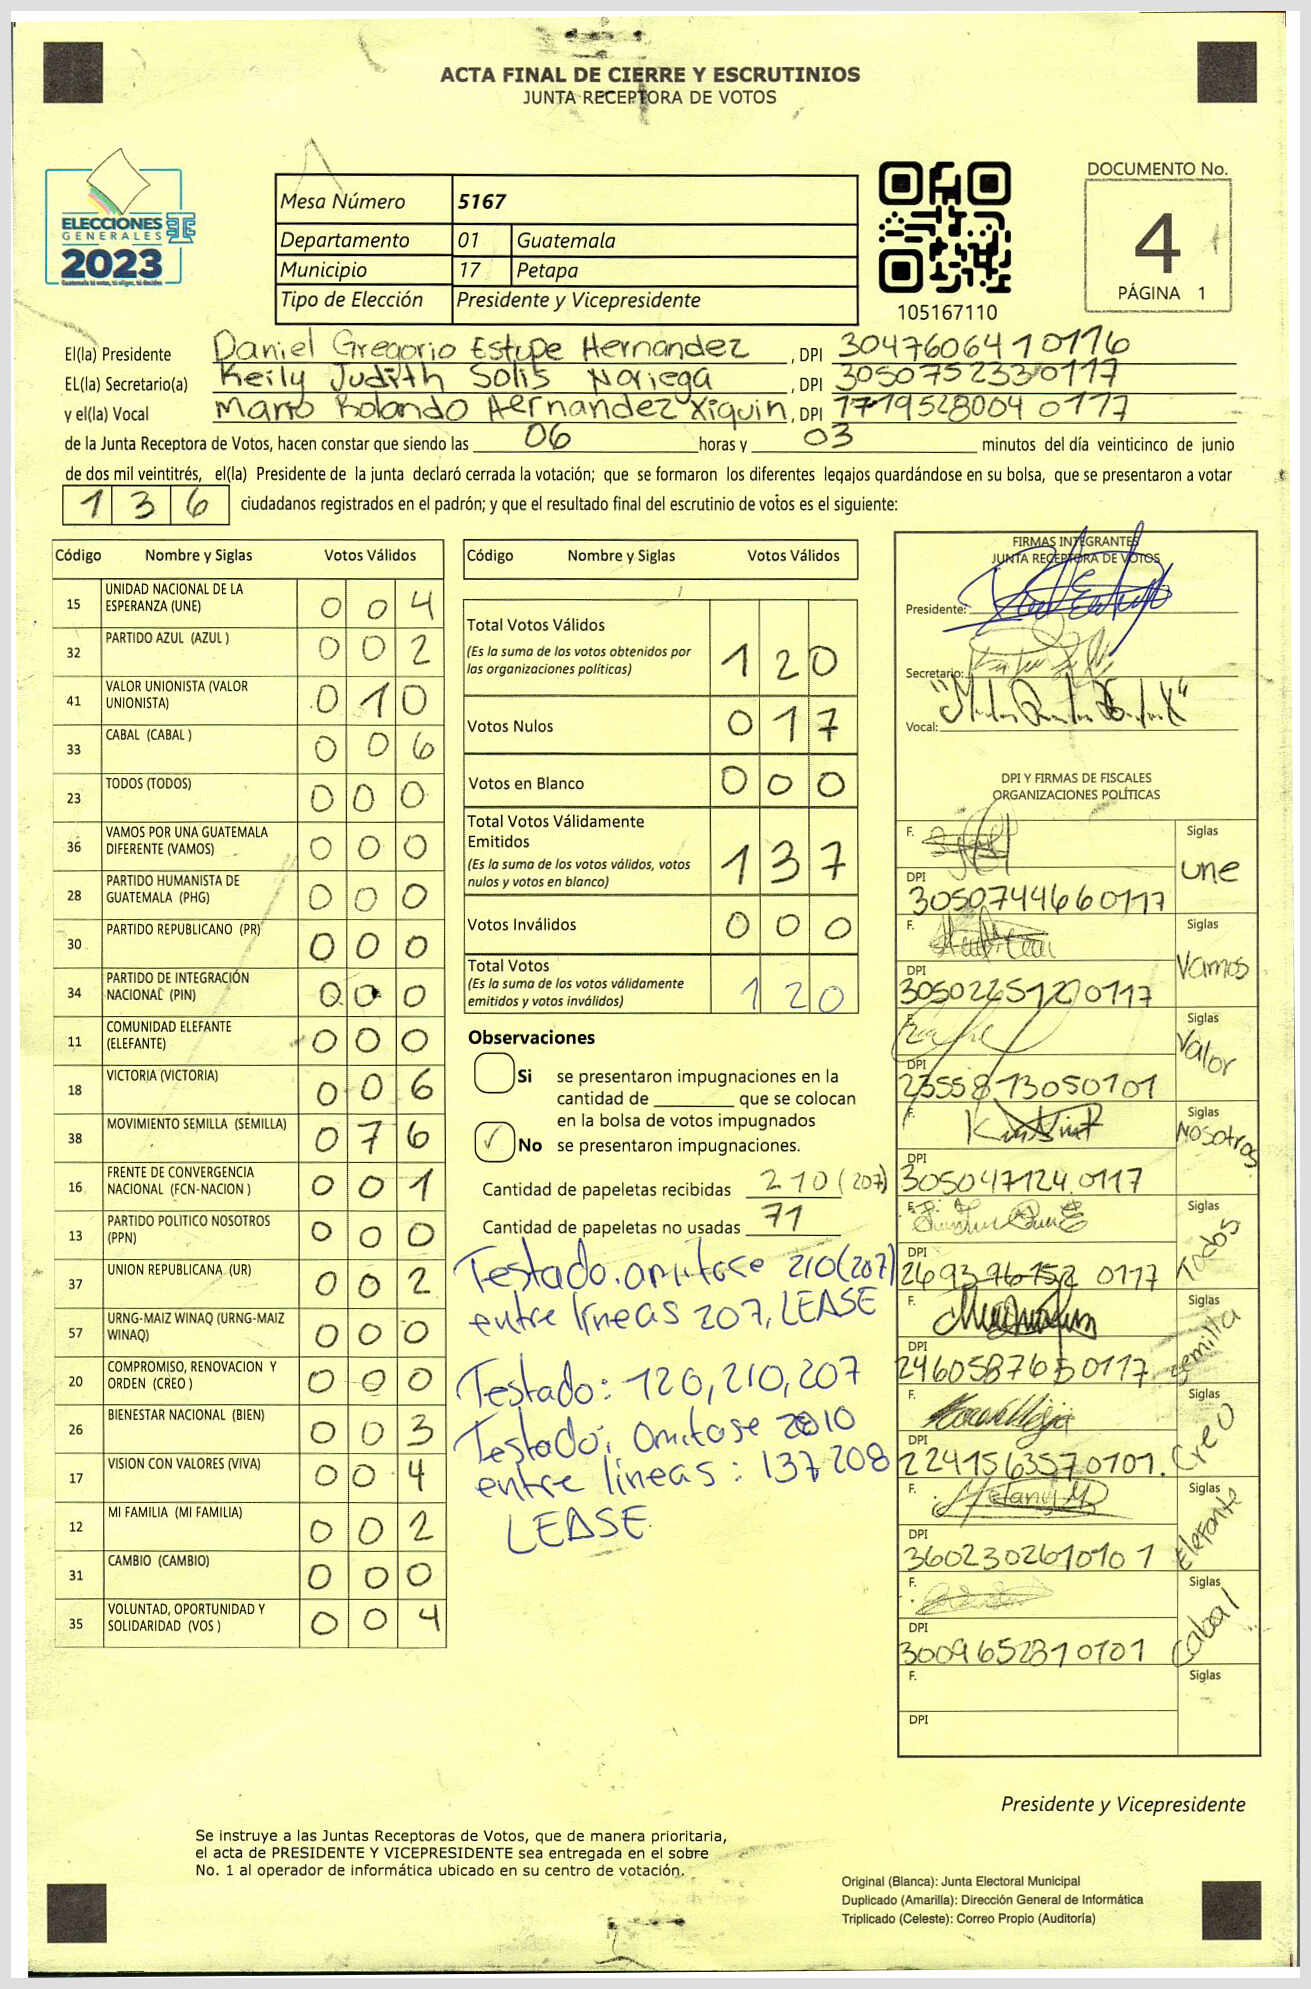 ACTA FINAL DE CIERRE Y ESCRUTINIOS
JUNTA RECEPTORA DE VOTOS
ELECCIONES
GENERALES
2023
Guatemala tú votas, tú eliges, tú decides
Mesa Número 5167
Departamento 01 Guatemala
Municipio 17 Petapa
Tipo de Elección Presidente y Vicepresidente
105167110
DOCUMENTO No.
4
PÁGINA 1
El(la) Presidente Daniel Gregorio Estupe Hernandez , DPI 3047606410116
EL(la) Secretario(a) Keily Judith Solis Noriega , DPI 3050752330117
y el(la) Vocal Mario Rolando Hernandez Xiquin , DPI 1719528004 0117
de la Junta Receptora de Votos, hacen constar que siendo las 06 horas y 03 minutos del día veinticinco de junio
de dos mil veintitrés, el(la) Presidente de la junta declaró cerrada la votación; que se formaron los diferentes legajos quardándose en su bolsa, que se presentaron a votar
136 ciudadanos registrados en el padrón; y que el resultado final del escrutinio de votos es el siguiente:
Código Nombre y Siglas Votos Válidos
15 UNIDAD NACIONAL DE LA ESPERANZA (UNE) 004
32 PARTIDO AZUL (AZUL ) 002
41 VALOR UNIONISTA (VALOR UNIONISTA) 010
33 CABAL (CABAL ) 006
23 TODOS (TODOS) 000
36 VAMOS POR UNA GUATEMALA DIFERENTE (VAMOS) 000
28 PARTIDO HUMANISTA DE GUATEMALA (PHG) 000
30 PARTIDO REPUBLICANO (PR) 000
34 PARTIDO DE INTEGRACIÓN NACIONAL (PIN) 000
11 COMUNIDAD ELEFANTE (ELEFANTE) 000
18 VICTORIA (VICTORIA) 006
38 MOVIMIENTO SEMILLA (SEMILLA) 076
16 FRENTE DE CONVERGENCIA NACIONAL (FCN-NACION ) 001
13 PARTIDO POLITICO NOSOTROS (PPN) 000
37 UNION REPUBLICANA (UR) 002
57 URNG-MAIZ WINAQ (URNG-MAIZ WINAQ) 000
20 COMPROMISO, RENOVACION Y ORDEN (CREO ) 000
26 BIENESTAR NACIONAL (BIEN) 003
17 VISION CON VALORES (VIVA) 004
12 MI FAMILIA (MI FAMILIA) 002
31 CAMBIO (CAMBIO) 000
35 VOLUNTAD, OPORTUNIDAD Y SOLIDARIDAD (VOS ) 004
Código Nombre y Siglas Votos Válidos
Total Votos Válidos 120
(Es la suma de los votos obtenidos por
las organizaciones políticas)
Votos Nulos 017
Votos en Blanco 000
Total Votos Válidamente
Emitidos 137
(Es la suma de los votos válidos, votos
nulos y votos en blanco)
Votos Inválidos 000
Total Votos
(Es la suma de los votos válidamente
emitidos y votos inválidos) 120
Observaciones
Si se presentaron impugnaciones en la
cantidad de ________ que se colocan
en la bolsa de votos impugnados
✓ No se presentaron impugnaciones.
Cantidad de papeletas recibidas 210 (207)
Cantidad de papeletas no usadas 71
Testado. omitase 210(207)
entre líneas 207, LEASE
Testado: 120, 210, 207
Testado; Omitase 2010
entre líneas: 137 208
LEASE
FIRMAS INTEGRANTES
JUNTA RECEPTORA DE VOTOS
Presidente:
Secretario:
Vocal:
DPI Y FIRMAS DE FISCALES
ORGANIZACIONES POLÍTICAS
F. Siglas
une
DPI
3050744660117
F. Siglas
Vamos
DPI
3050226512 0117
F. Siglas
Valor
DPI
2355813050101
F. Siglas
Nosotros
DPI
305047124 0117
F. Siglas
todos
DPI
269396152 0117
F. Siglas
Semilla
DPI
2460587650117
F. Siglas
Creo
DPI
2241563570101.
F. Siglas
Elefante
DPI
3602302610101
F. Siglas
Cabal
DPI
3009652310101
F. Siglas
DPI
Presidente y Vicepresidente
Se instruye a las Juntas Receptoras de Votos, que de manera prioritaria,
el acta de PRESIDENTE Y VICEPRESIDENTE sea entregada en el sobre
No. 1 al operador de informática ubicado en su centro de votación.
Original (Blanca): Junta Electoral Municipal
Duplicado (Amarilla): Dirección General de Informática
Triplicado (Celeste): Correo Propio (Auditoría)